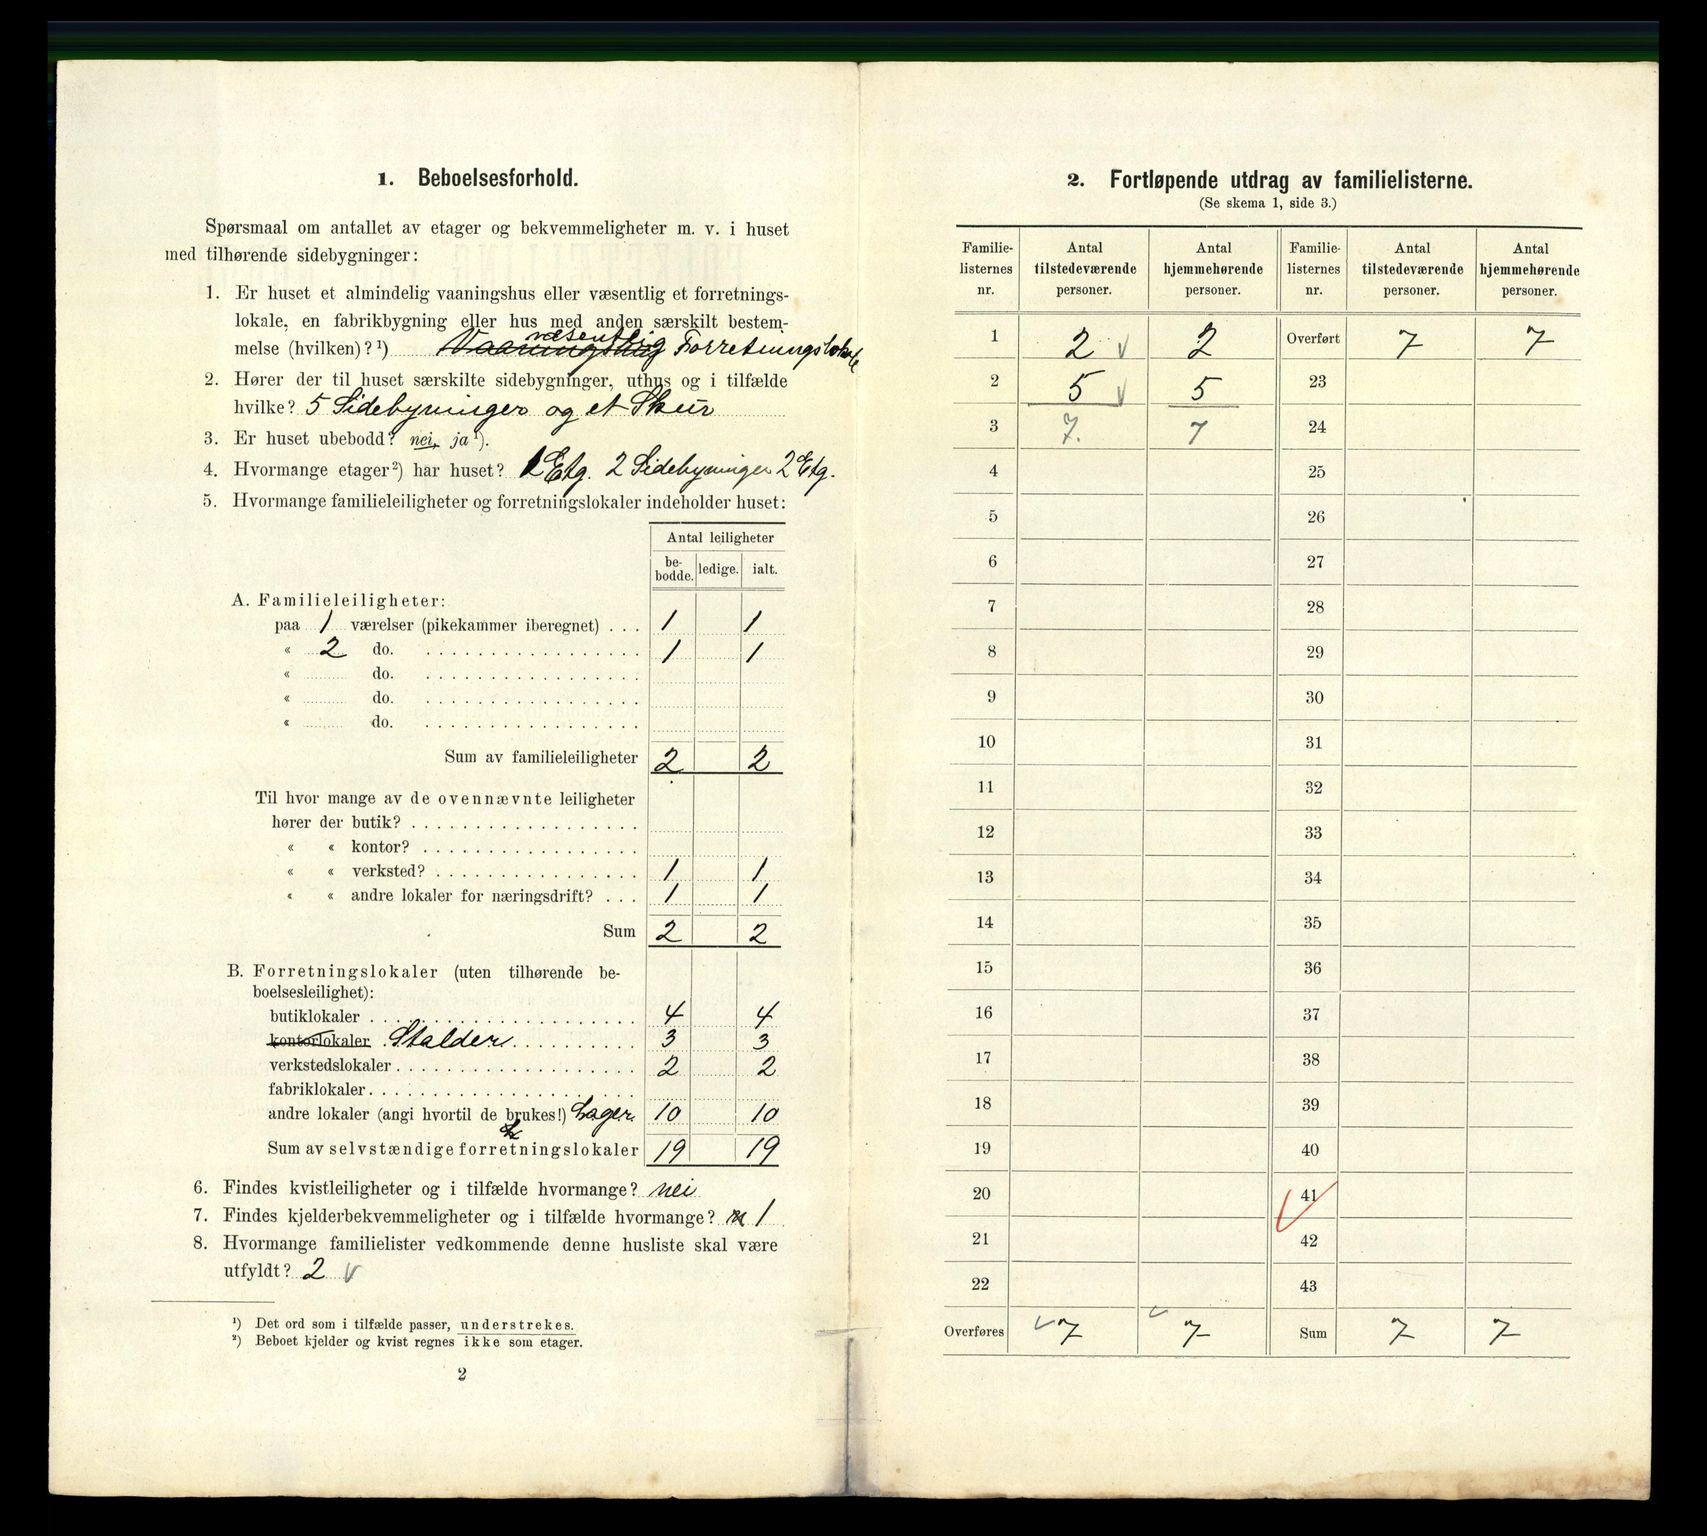 1. Beboelsesforhold.
Spørsmaal om antallet av etager og bekvemmeligheter m. v. i huset
med tilhørende sidebygninger:
1. Er huset et almindelig vaaningshus eller væsentlig et forretnings-
lokale, en fabrikbygning eller hus med anden særskilt bestem-
væsentlig
melse (hvilken)? ¹) Vaaningshus Forretningslokale
2. Hører der til huset særskilte sidebygninger, uthus og i tilfælde
hvilke? 5 Sidebyninger og et Skur
3. Er huset ubebodd? nei, ja ¹).
4. Hvormange etager ²) har huset? 1 Etg. 2 Sidebyninger 2 Etg.
5. Hvormange familieleiligheter og forretningslokaler indeholder huset:
Antal leiligheter
be-
bodde. ledige. ialt.
A. Familieleiligheter:
paa 1 værelser (pikekammer iberegnet) . . . 1 1
« 2 do. 1 1
« do.
« do.
« do.
Sum av familieleiligheter 2 2
Til hvor mange av de ovennævnte leiligheter
hører der butik?
« « kontor?
« « verksted? 1 1
« « andre lokaler for næringsdrift? . . . 1 1
Sum 2 2
B. Forretningslokaler (uten tilhørende be-
boelsesleilighet):
butiklokaler 4 4
kontorlokaler Stalder 3 3
verkstedslokaler 2 2
fabriklokaler
andre lokaler (angi hvortil de brukes!) Lager. 10 10
Sum av selvstændige forretningslokaler 19 19
6. Findes kvistleiligheter og i tilfælde hvormange? nei
7. Findes kjelderbekvemmeligheter og i tilfælde hvormange? 1
8. Hvormange familielister vedkommende denne husliste skal være
utfyldt? 2 v
¹) Det ord som i tilfælde passer, understrekes.
²) Beboet kjelder og kvist regnes ikke som etager.
2
2. Fortløpende utdrag av familielisterne.
(Se skema 1, side 3.)
Familie- Antal Antal Familie- Antal Antal
listernes tilstedeværende hjemmehørende listernes tilstedeværende hjemmehørende
nr. personer. personer. nr. personer. personer.
1 2 v 2 Overført 7 7
2 5 v 5 23
3 7. 7 24
4 25
5 26
6 27
7 28
8 29
9 30
10 31
11 32
12 33
13 34
14 35
15 36
16 37
17 38
18 39
19 40
20 41
21 42
22 43
Overføres v 7 v 7 Sum 7 7